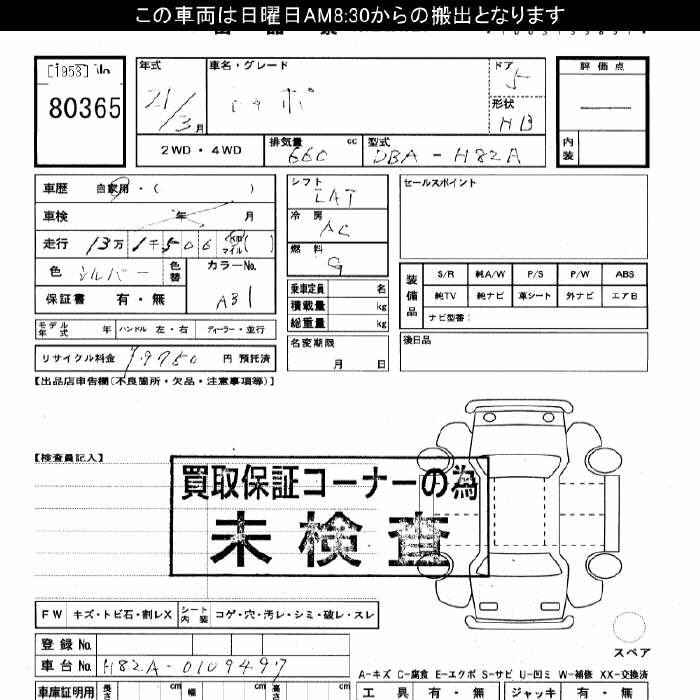 この車両は日曜日AM8:30からの搬出となります
[1953]
80365
年式
21/3月
車名・グレード
トッポ
ドア
5
形状
HB
評価点
内装
2WD・4WD
排気量 660 cc
型式 DBA-H82A
車歴 自家用・( )
車検 年 月
走行 13万1千506 km マイル( )
色 シルバー 色替
カラーNo. A31
保証書 有・無
シフト
LAT
冷房
AC
燃料
G
乗車定員 名
積載量 kg
総重量 kg
名変期限
月 日
セールスポイント
装備品
S/R 純A/W P/S P/W ABS
純TV 純ナビ 革シート 外ナビ エアB
ナビ型番:
後日品
モデル年式 年 ハンドル 左・右 ディーラー・並行
リサイクル料金 円 預託済
【出品店申告欄(不良箇所・欠品・注意事項等)】
【検査員記入】
買取保証コーナーの為
未検査
FW キズ・トビ石・割レX シート内装 コゲ・穴・汚レ・シミ・破レ・スレ
スペア
登録No.
車台No. H82A-0109497
A-キズ C-腐食 E-エクボ S-サビ U-凹ミ W-補修 XX-交換済
車庫証明用 長さ cm 幅 cm 高さ cm
工具 有・無 ジャッキ 有・無